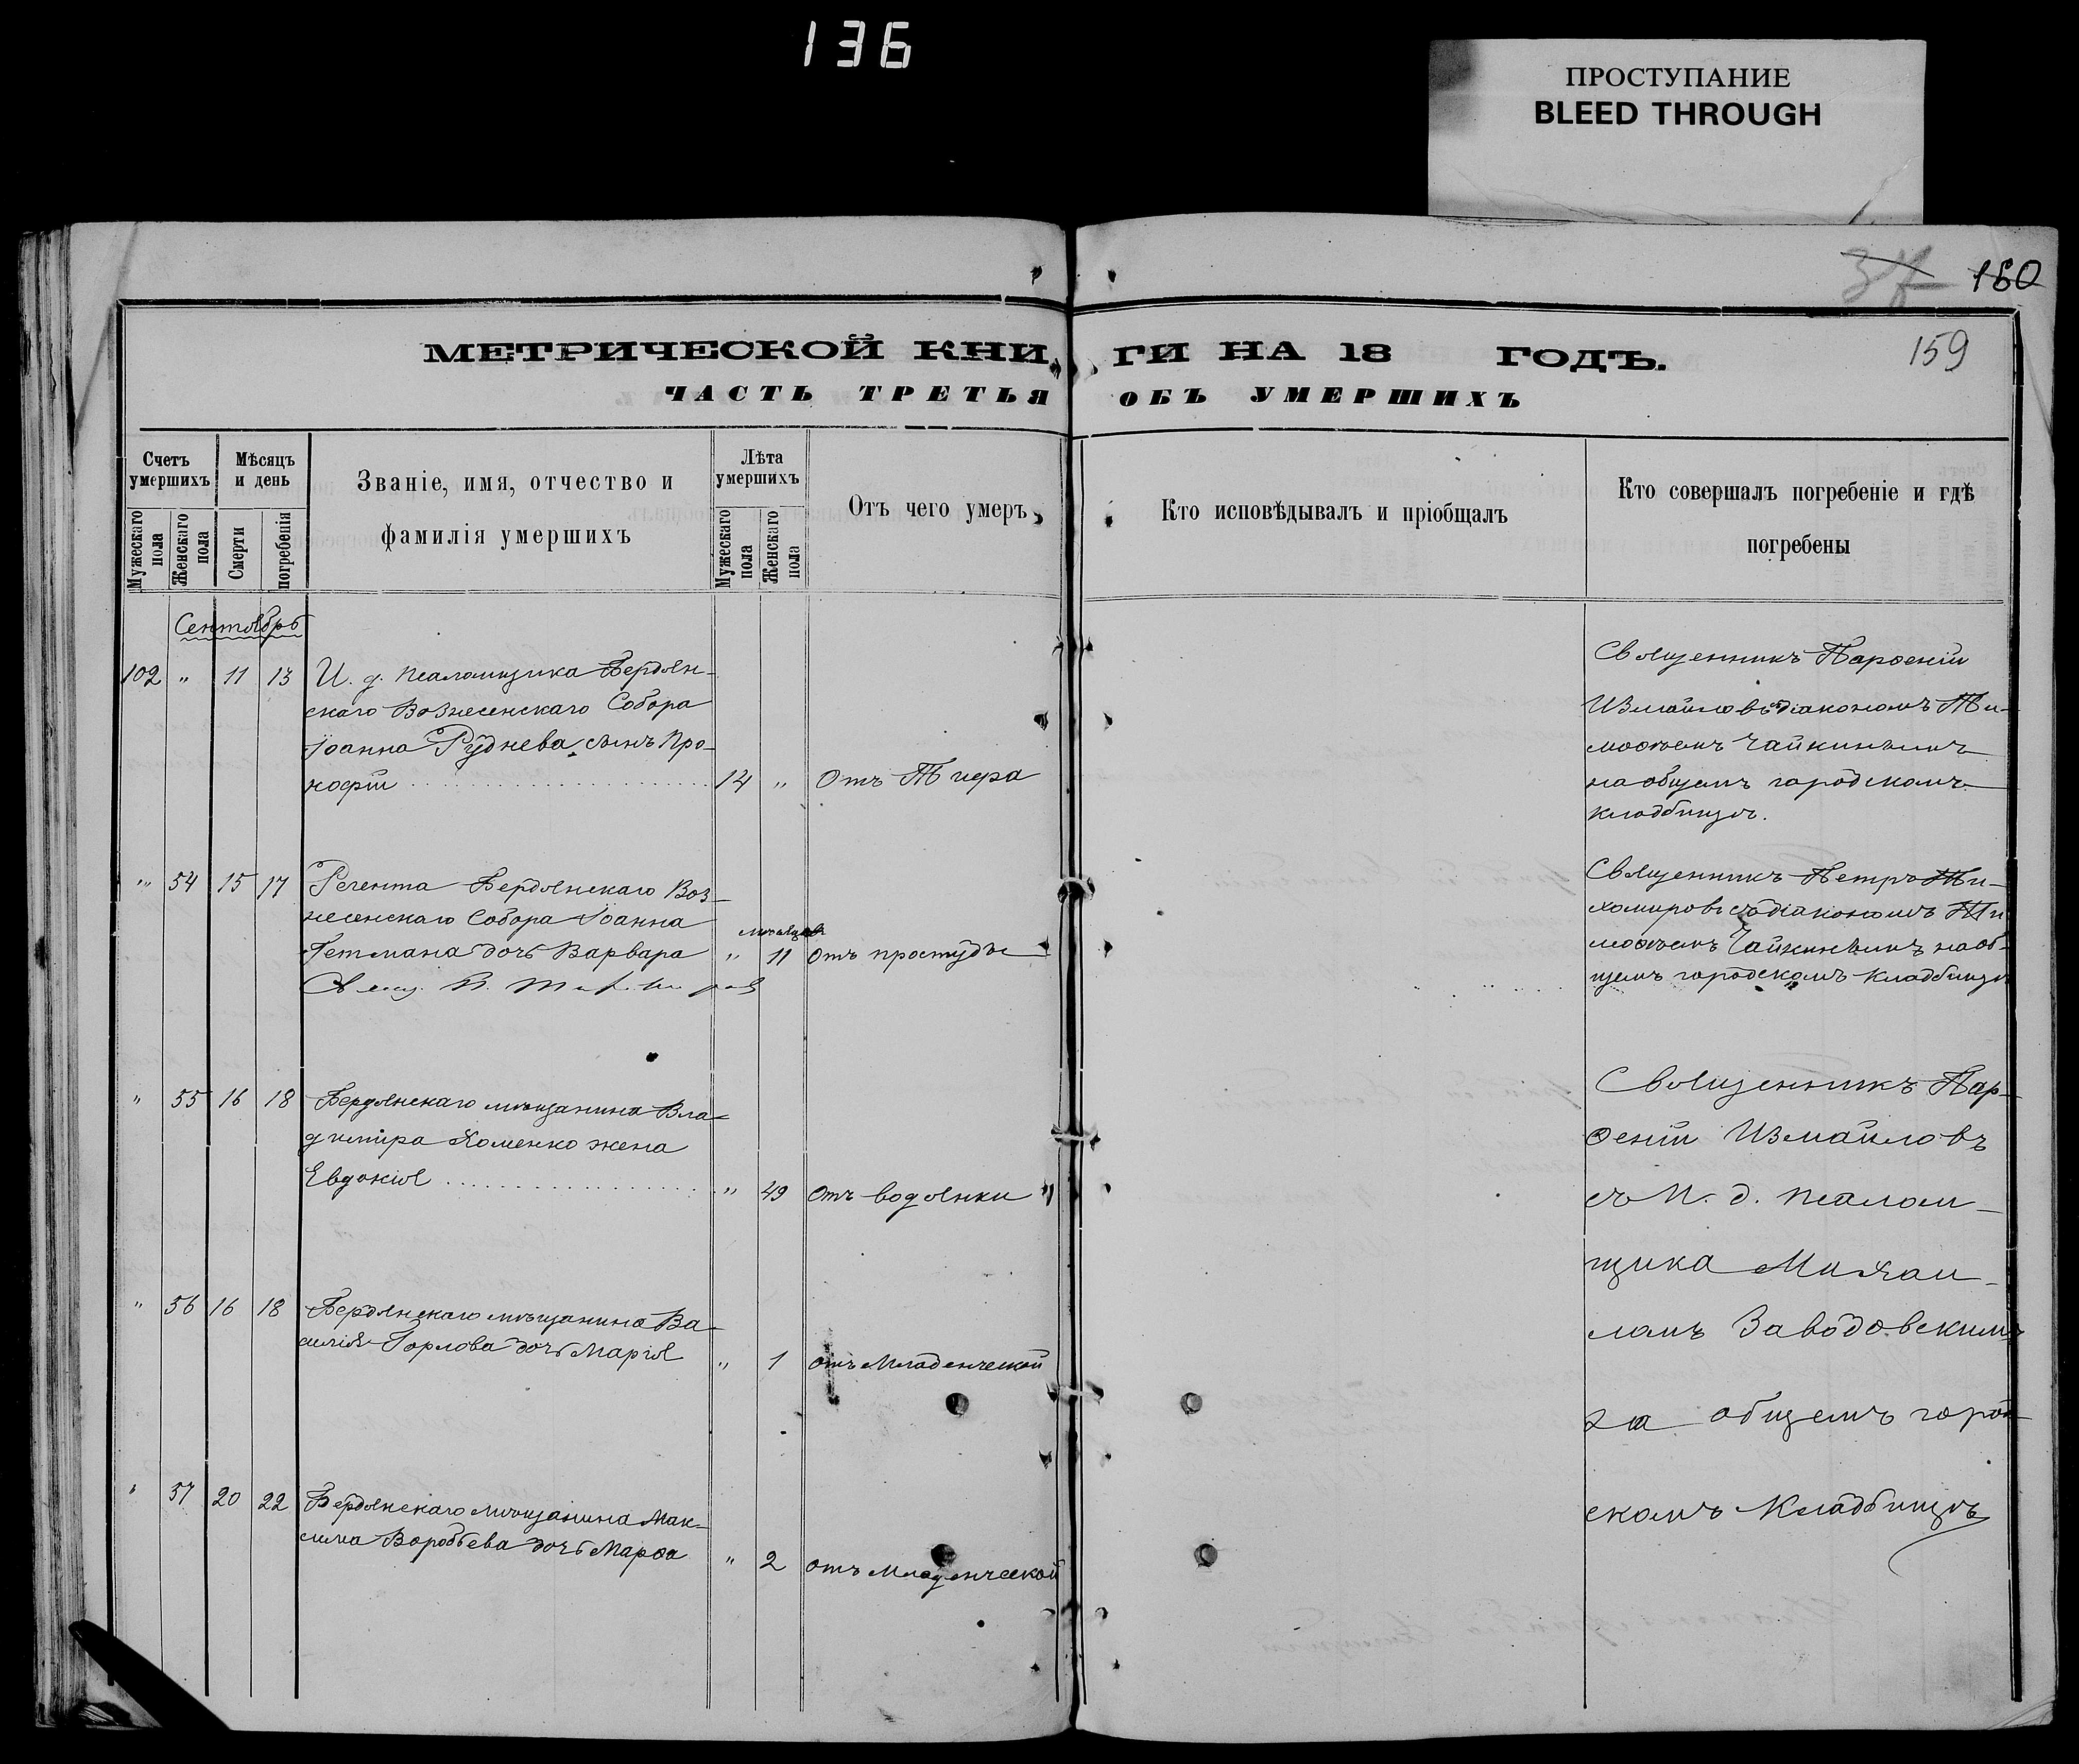 136
ПРОСТУПАНИЕ
BLEED THROUGH
160
159
МЕТРИЧЕСКОЙ КНИГИ НА 18 ГОДЪ.
ЧАСТЬ ТРЕТЬЯ ОБЪ УМЕРШИХЪ
Счетъ умершихъ
Мужескаго пола
Женскаго пола
Мѣсяцъ и день
Смерти
погребенія
Званіе, имя, отчество и
фамилія умершихъ
Лѣта умершихъ
Мужескаго пола
Женскаго пола
Отъ чего умеръ
Кто исповѣдывалъ и пріобщалъ
Кто совершалъ погребеніе и гдѣ
погребены
Сентябрь
102 " 11 13 И. д. псаломщика Бердян-
скаго Вознесенскаго Собора
Іоанна Руднева, сынъ Про-
кофій 14 " Отъ Тифа
Священникъ Парѳеній
Измайловъ съ діакономъ Ти-
моѳеемъ Чайкинымъ
на общемъ городскомъ
кладбищѣ.
" 54 15 17 Регента Бердянскаго Воз-
несенскаго Собора Іоанна
Гетмана дочь Варвара " 11 мѣсяцевъ отъ простуды
Свящ. П. Тихомировъ
Священникъ Петръ Ти-
хомировъ съ діакономъ Ти
моѳеемъ Чайкинымъ на об-
щемъ городскомъ кладбищѣ
" 55 16 18 Бердянскаго мѣщанина Вла-
диміра Хоменко жена
Евдокія " 49 отъ водянки
Священникъ Пар-
ѳеній Измайловъ
съ И. д. псалом-
щика Михаи-
ломъ Заводовскимъ
на общемъ город
скомъ кладбищѣ
" 56 16 18 Бердянскаго мѣщанина Ва-
силія Горлова дочь Марія " 1 отъ младенческой
" 57 20 22 Бердянскаго мѣщанина Мак-
сима Воробьева дочь Марѳа " 2 отъ младенческой